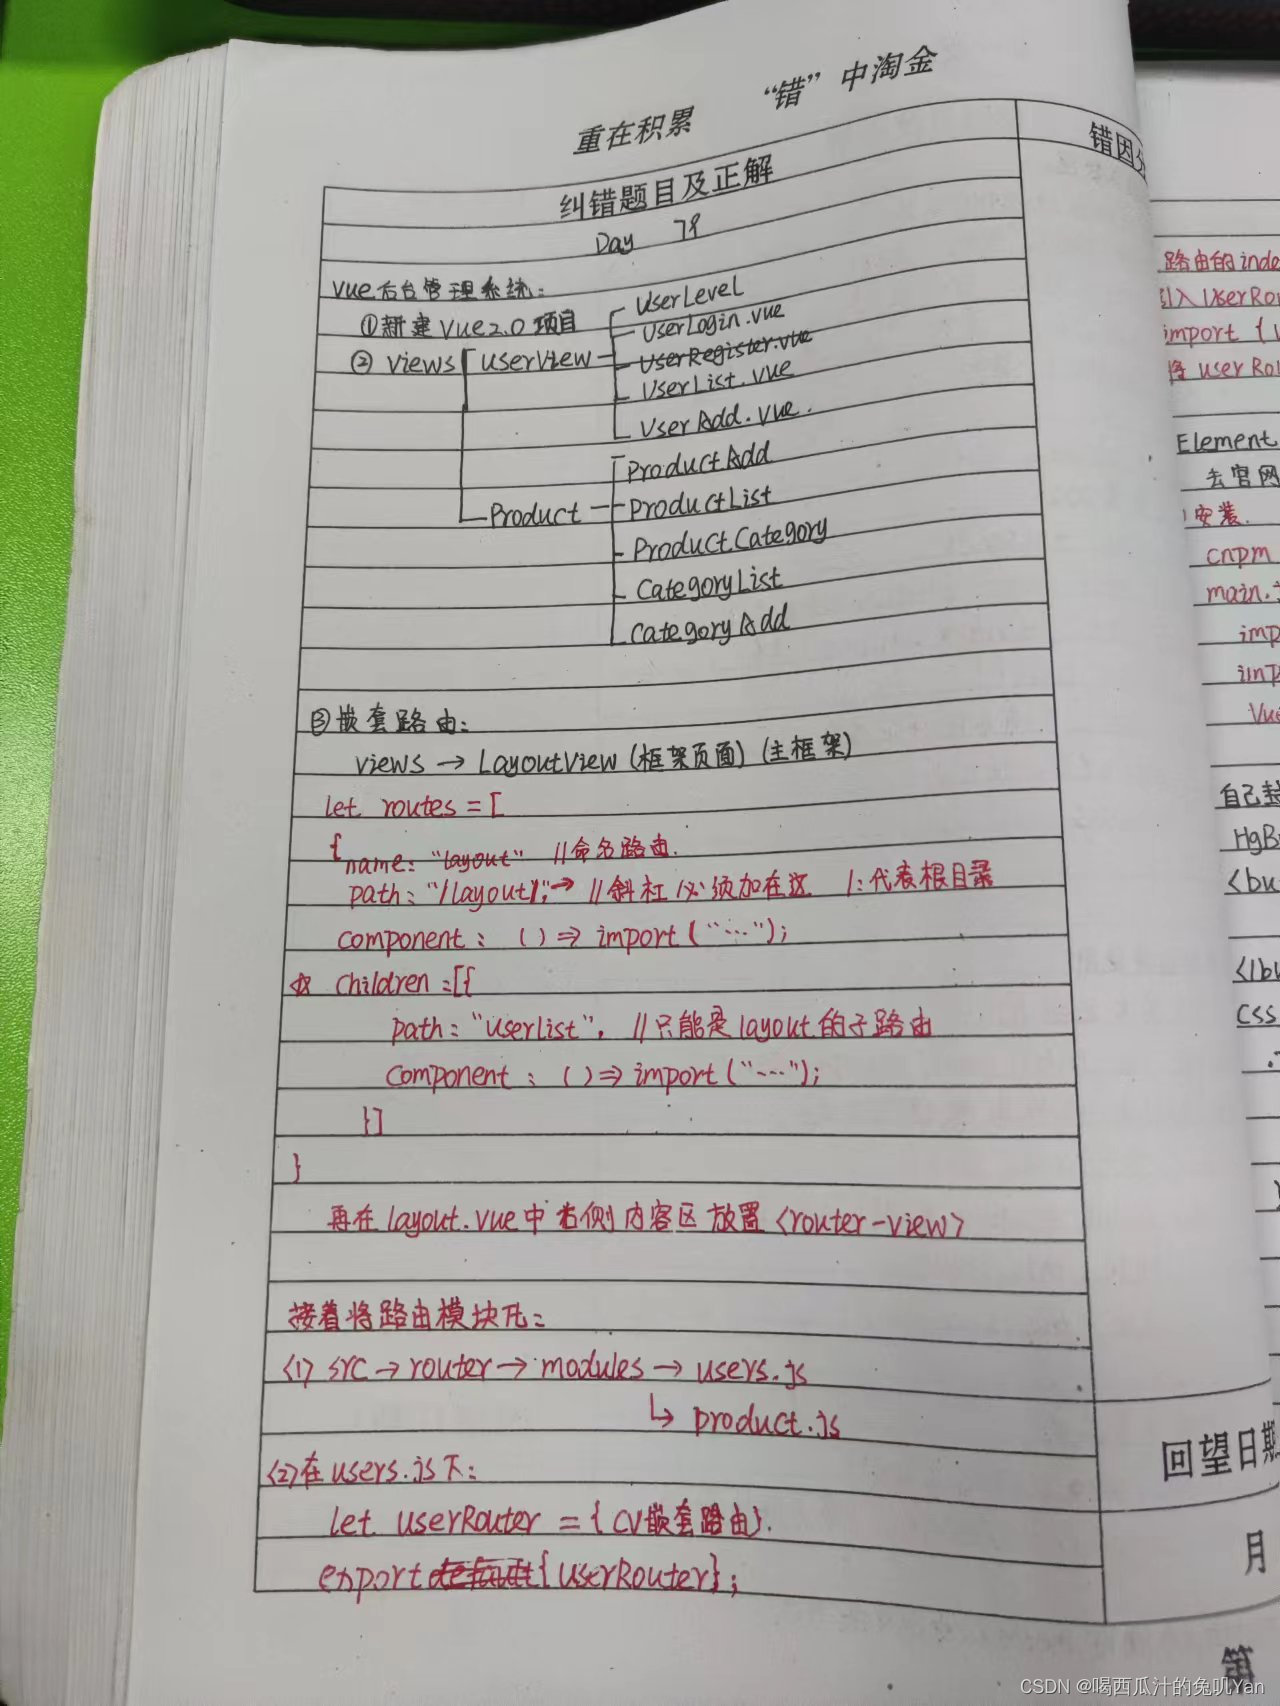 重在积累 “错”中淘金
纠错题目及正解
错因分
Day 79
Vue后台管理系统:
①新建Vue2.0项目
② views
userView
UserLevel
UserLogin.vue
UserRegister.vue
UserList.vue
UserAdd.vue.
Product
ProductAdd
ProductList
Product.Category
CategoryList
CategoryAdd
③嵌套路由:
views → LayoutView (框架页面) (主框架)
let routes = [
{
name: "layout" //命名路由.
path: "/layout/", → //斜杠必须加在这 /:代表根目录
component: () => import ("...");
☆ children :[{
path: "userlist", //只能是layout的子路由
component: () => import ("---");
}]
}
再在layout.vue中右侧内容区放置<router-view>
接着将路由模块化:
<1> src → router → modules → users.js
↳ product.js
<2>在users.js下:
let userRouter = {CV嵌套路由}.
export default {userRouter};
路由的inde
引入UserRou
import {u
将userRou
Element
去官网
安装.
cnpm
main.j
imp
imp
Vue
自己封
HgBu
<bu
</bu
css
回望日期
月
第
CSDN @喝西瓜汁的兔叽Yan